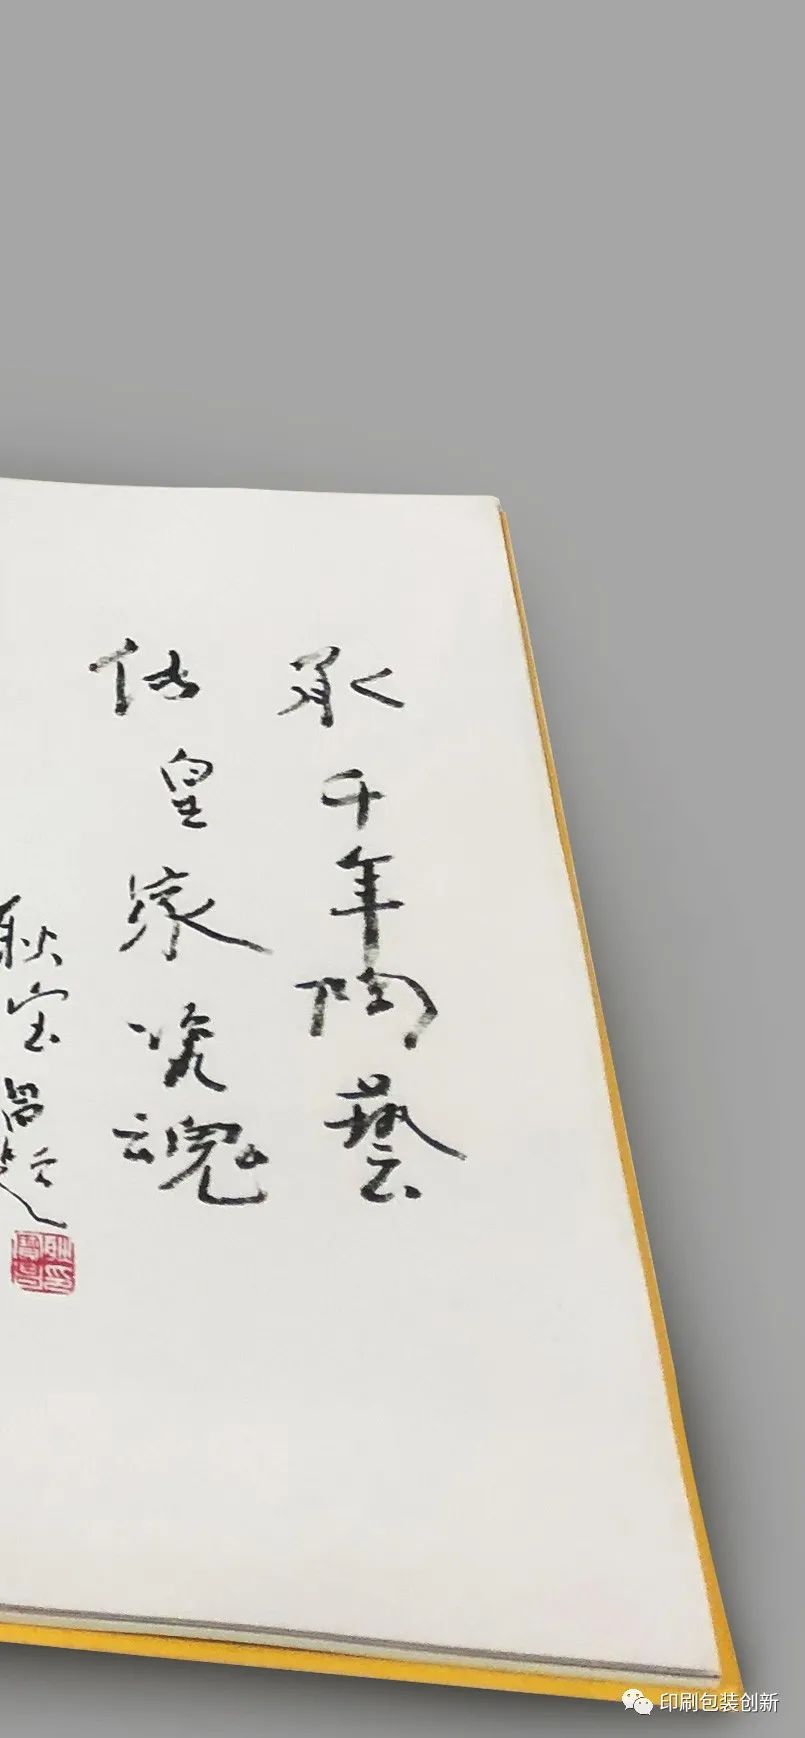 承千年陶藝
传皇家瓷魂
耿宝昌题
印刷包装创新